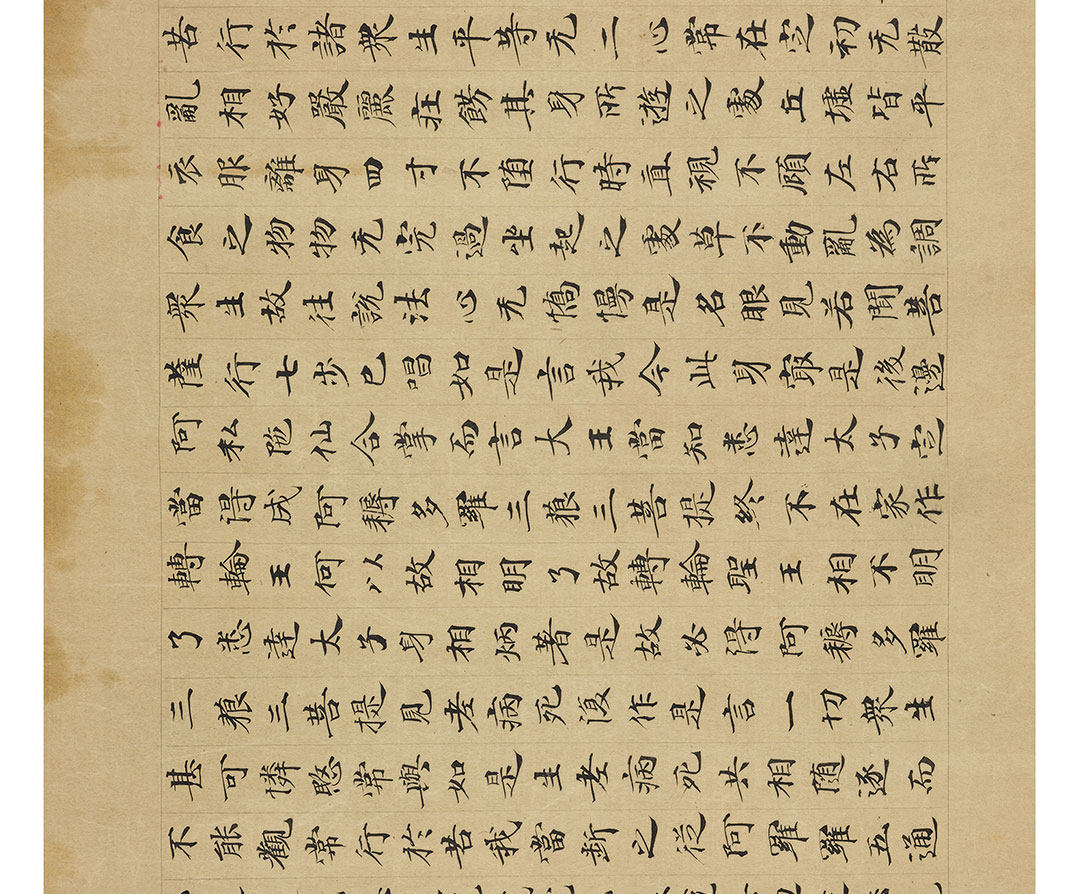 苦行於諸衆生平等无二心常在定初无散
亂相好嚴麗庄餝其身所遊之處丘墟皆平
衣服離身四寸不堕行時直視不顧左右所
食之物物无完過坐起之處草不動亂為調
衆生故往說法心无憍慢是名眼見若聞菩
薩行七步已唱如是言我今此身㝡是後邊
阿私陁仙合掌而言大王當知悉達太子定
當得成阿耨多羅三藐三菩提終不在家作
轉輪王何以故相明了故轉輪聖王相不明
了悉達太子身相炳著是故必得阿耨多羅
三藐三菩提見老病死復作是言一切衆生
甚可憐愍常與如是生老病死共相随逐而
不能觀常行於苦我當断之從阿羅羅五通